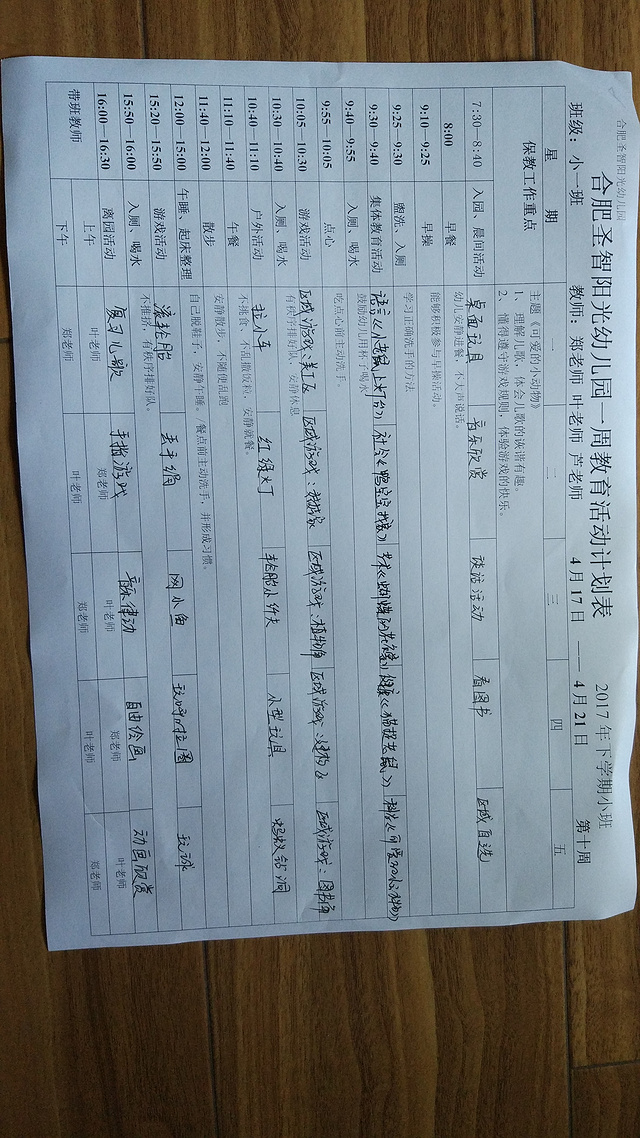 合肥圣智阳光幼儿园
合肥圣智阳光幼儿园一周教育活动计划表 2017 年下学期小班
班级：小一班 教师：郑老师 叶老师 芦老师 4 月 17 日 —— 4 月 21 日 第十周
星 期 一 二 三 四 五
保教工作重点 主题《可爱的小动物》
1、理解儿歌，体会儿歌的诙谐有趣。
2、懂得遵守游戏规则，体验游戏的快乐。
7:30—8:40 入园、晨间活动 桌面玩具 音乐欣赏 谈话活动 看图书 区域自选
8:00 早餐 幼儿安静进餐，不大声说话。
9:10—9:25 早操 能够积极参与早操活动。
9:25—9:30 盥洗、入厕 学习正确洗手的方法
9:30—9:40 集体教育活动 语言《小老鼠上灯台》 社会《鸭宝宝搬家》 艺术《蝴蝶的花翅》 健康《猫捉老鼠》 科学
9:40—9:55 入厕、喝水 鼓励幼儿用杯子喝水
9:55—10:05 点心 吃点心前主动洗手。
10:05—10:30 游戏活动 区域游戏：美工区 区域游戏：娃娃家 区域游戏：植物角 区域游戏：建构区 区域游戏：图书角
10:30—10:40 入厕、喝水 有秩序排好队，安静休息
10:40—11:10 户外活动 拉小车 红绿灯 轮胎小竹夫 小型玩具 蚂蚁钻洞
11:10—11:40 午餐 不挑食、不乱撒饭粒，安静就餐。
11:40—12:00 散步 安静散步，不随便乱跑
12:00—15:00 午睡、起床整理 自己脱鞋子，安静午睡。餐点前主动洗手，并形成习惯。
15:20—15:50 游戏活动 滚轮胎 丢手绢 网小鱼 玩呼啦圈 玩球
15:50—16:00 入厕、喝水 不推挤，有秩序排好队。
16:00—16:30 离园活动 复习儿歌 手指游戏 音乐律动 自由绘画 动画欣赏
带班教师 上午 叶老师 郑老师 叶老师 郑老师 叶老师
下午 郑老师 叶老师 郑老师 叶老师 郑老师